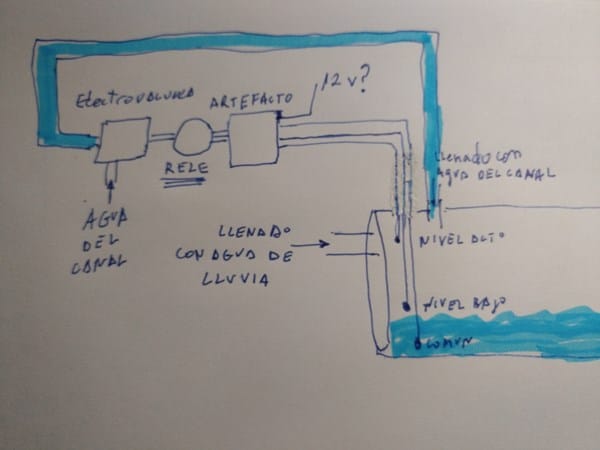 Electrovalvula
ARTEFACTO
12 v?
RELE
AGUA
DEL
CANAL
LLENADO
CON AGUA DE
LLUVIA
LLenado con
AGUA DEL CANAL
NIVEL ALTO
NIVEL BAJO
COMUN